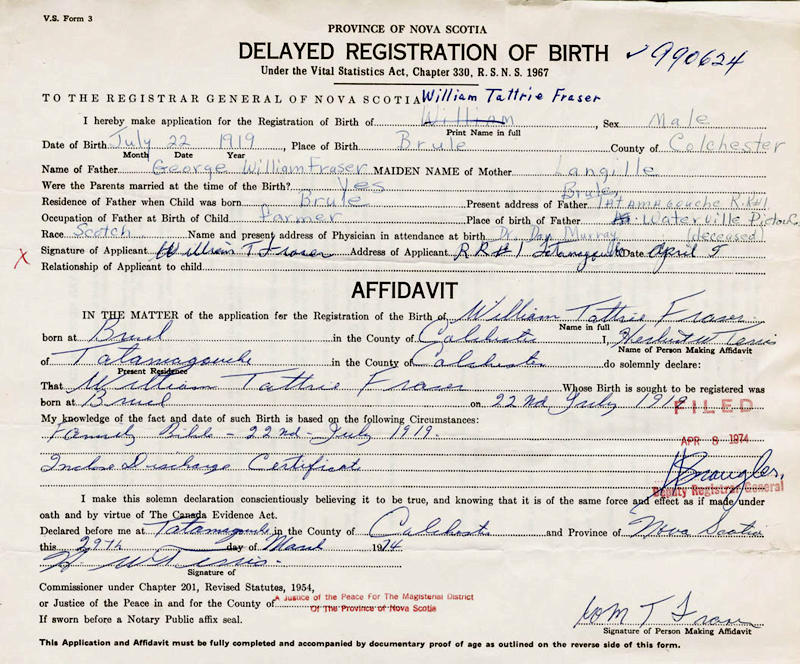 V.S. Form 3
PROVINCE OF NOVA SCOTIA
DELAYED REGISTRATION OF BIRTH ✓990624
Under the Vital Statistics Act, Chapter 330, R.S.N.S. 1967
TO THE REGISTRAR GENERAL OF NOVA SCOTIA William Tattrie Fraser
I hereby make application for the Registration of Birth of William, Sex Male
Print Name in full
Date of Birth July 22 1919, Place of Birth Brule County of Colchester
Month Date Year
Name of Father George William Fraser MAIDEN NAME of Mother Langille
Were the Parents married at the time of the Birth? Yes Brule,
Residence of Father when Child was born Brule Present address of Father Tatamagouche R.R#1
Occupation of Father at Birth of Child farmer Place of birth of Father Waterville Pictou
Race Scotch Name and present address of Physician in attendance at birth Dr. Dan Murray (deceased)
X Signature of Applicant William T Fraser Address of Applicant RR#1 Tatamagouche Date April 5
Relationship of Applicant to child
AFFIDAVIT
IN THE MATTER of the application for the Registration of the Birth of William Tattrie Fraser
Name in full
born at Brule in the County of Colchester I,
Name of Person Making Affidavit
of Tatamagouche in the County of Colchester do solemnly declare:
Present Residence
That William Tattrie Fraser Whose Birth is sought to be registered was
born at Brule on 22nd July 1919
FILED
My knowledge of the fact and date of such Birth is based on the following Circumstances:
Family Bible - 22nd July 1919.
APR 8 1974
Inclose Discharge Certificate
Deputy Registrar General
I make this solemn declaration conscientiously believing it to be true, and knowing that it is of the same force and effect as if made under
oath and by virtue of The Canada Evidence Act.
Declared before me at Tatamagouche in the County of Colchester and Province of Nova Scotia
this 29th day of March 1974
Signature of
Commissioner under Chapter 201, Revised Statutes, 1954,
or Justice of the Peace in and for the County of A Justice of the Peace For The Magisterial District
Of The Province of Nova Scotia
If sworn before a Notary Public affix seal.
Wm T Fraser
Signature of Person Making Affidavit
This Application and Affidavit must be fully completed and accompanied by documentary proof of age as outlined on the reverse side of this form.